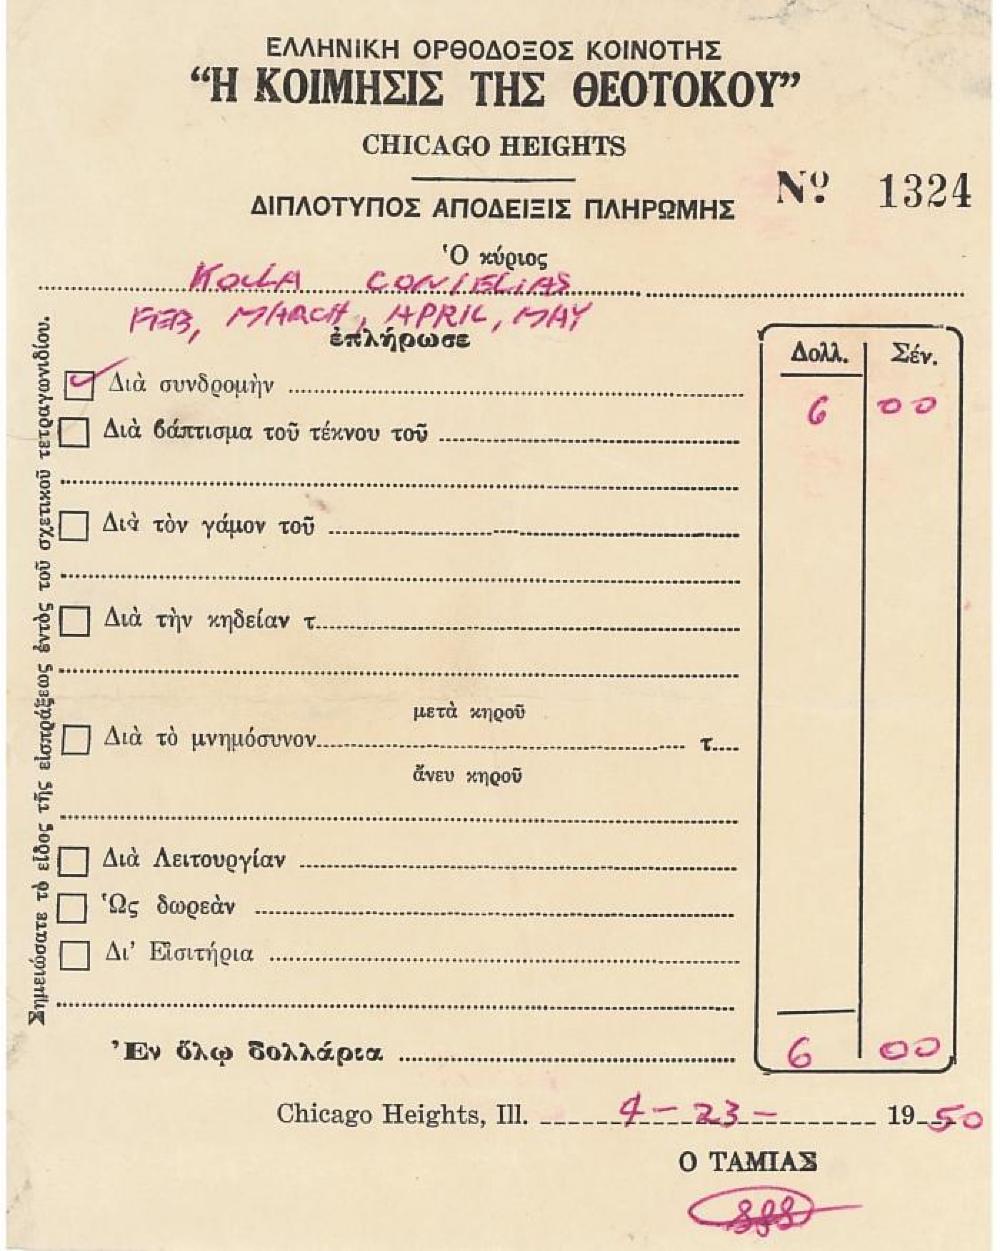 ΕΛΛΗΝΙΚΗ ΟΡΘΟΔΟΞΟΣ ΚΟΙΝΟΤΗΣ
“Η ΚΟΙΜΗΣΙΣ ΤΗΣ ΘΕΟΤΟΚΟΥ”
CHICAGO HEIGHTS
Nº 1324
ΔΙΠΛΟΤΥΠΟΣ ΑΠΟΔΕΙΞΙΣ ΠΛΗΡΩΜΗΣ
Ὁ κύριος
FEB, MARCH, APRIL, MAY
ἐπλήρωσε
Δολλ. Σέν.
Διὰ συνδρομὴν
6 00
Διὰ βάπτισμα τοῦ τέκνου τοῦ
Διὰ τὸν γάμον τοῦ
Διὰ τὴν κηδείαν τ
μετὰ κηροῦ
Διὰ τὸ μνημόσυνον τ
ἄνευ κηροῦ
Διὰ Λειτουργίαν
Ὡς δωρεὰν
Δι’ Εἰσιτήρια
Ἐν ὅλῳ δολλάρια 6 00
Σημειώσατε τὸ εἶδος τῆς εἰσπράξεως ἐντὸς τοῦ σχετικοῦ τετραγωνιδίου.
Chicago Heights, Ill. 4-23- 1950
Ο ΤΑΜΙΑΣ